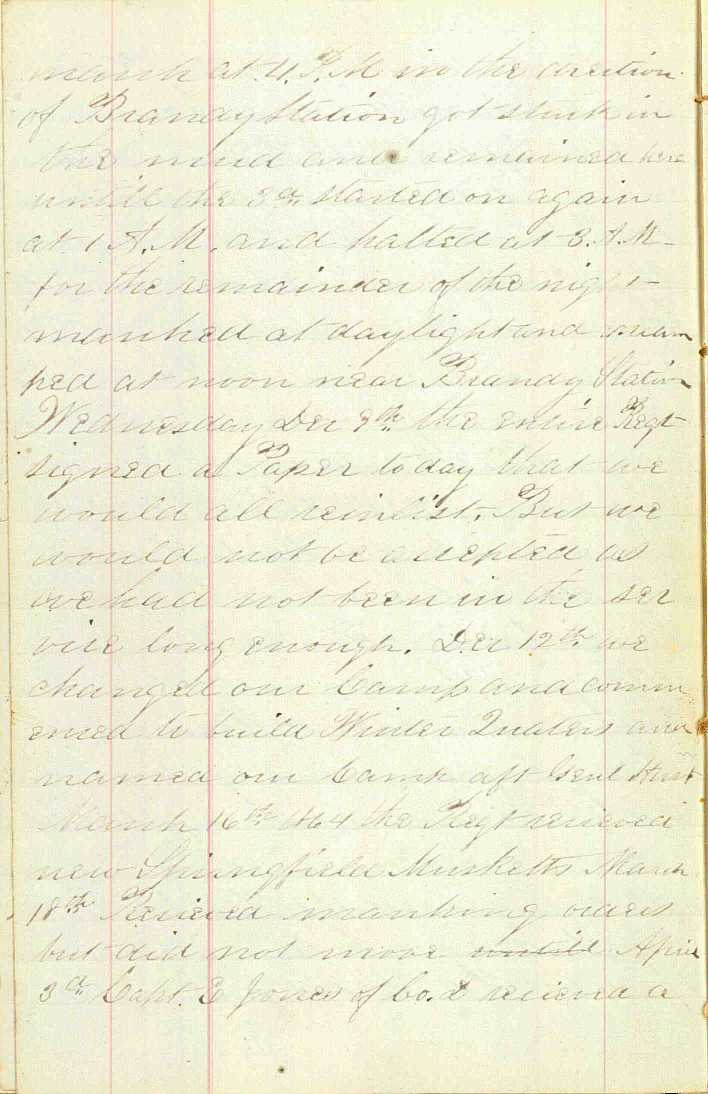 march at 4 P.M in the direction
of Brandy Station got stuck in
the mud and remained here
untill the 3rd started on again
at 1 A.M. and halted at 3. A.M-
for the remainder of the night-
marched at daylight and encam
ped at noon near Brandy Station
Wednesday Dec 9th the entire Regt
signed a Paper to day that we
would all reinlist. But we
would not be accepted as
we had not been in the ser
vice long enough. Dec 12th we
changed our Camp and comm
enced to build Winter Quaters and
named our Camp aft Genl
March 16th 1864 the Regt recieved
new Springfield Musketts March
18th Recieved marching orders
but did not move untill April
3rd Capt. E Jones of Co. recieved a